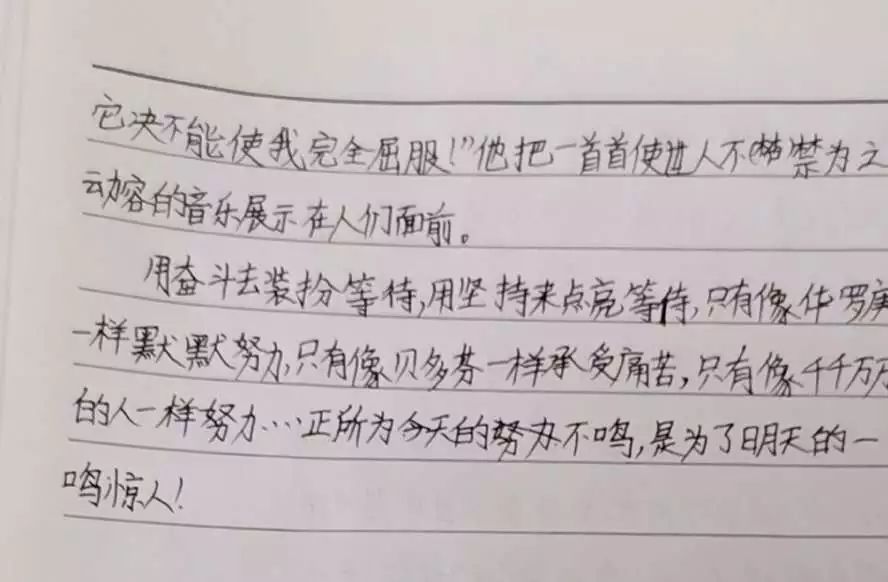 它决不能使我完全屈服!”他把一首首使世人不禁为之
动容的音乐展示在人们面前。
用奋斗去装扮等待,用坚持来点亮等待,只有像华罗庚
一样默默努力,只有像贝多芬一样承受痛苦,只有像千千万万
的人一样努力…正所为今天的努力不鸣,是为了明天的一
鸣惊人!